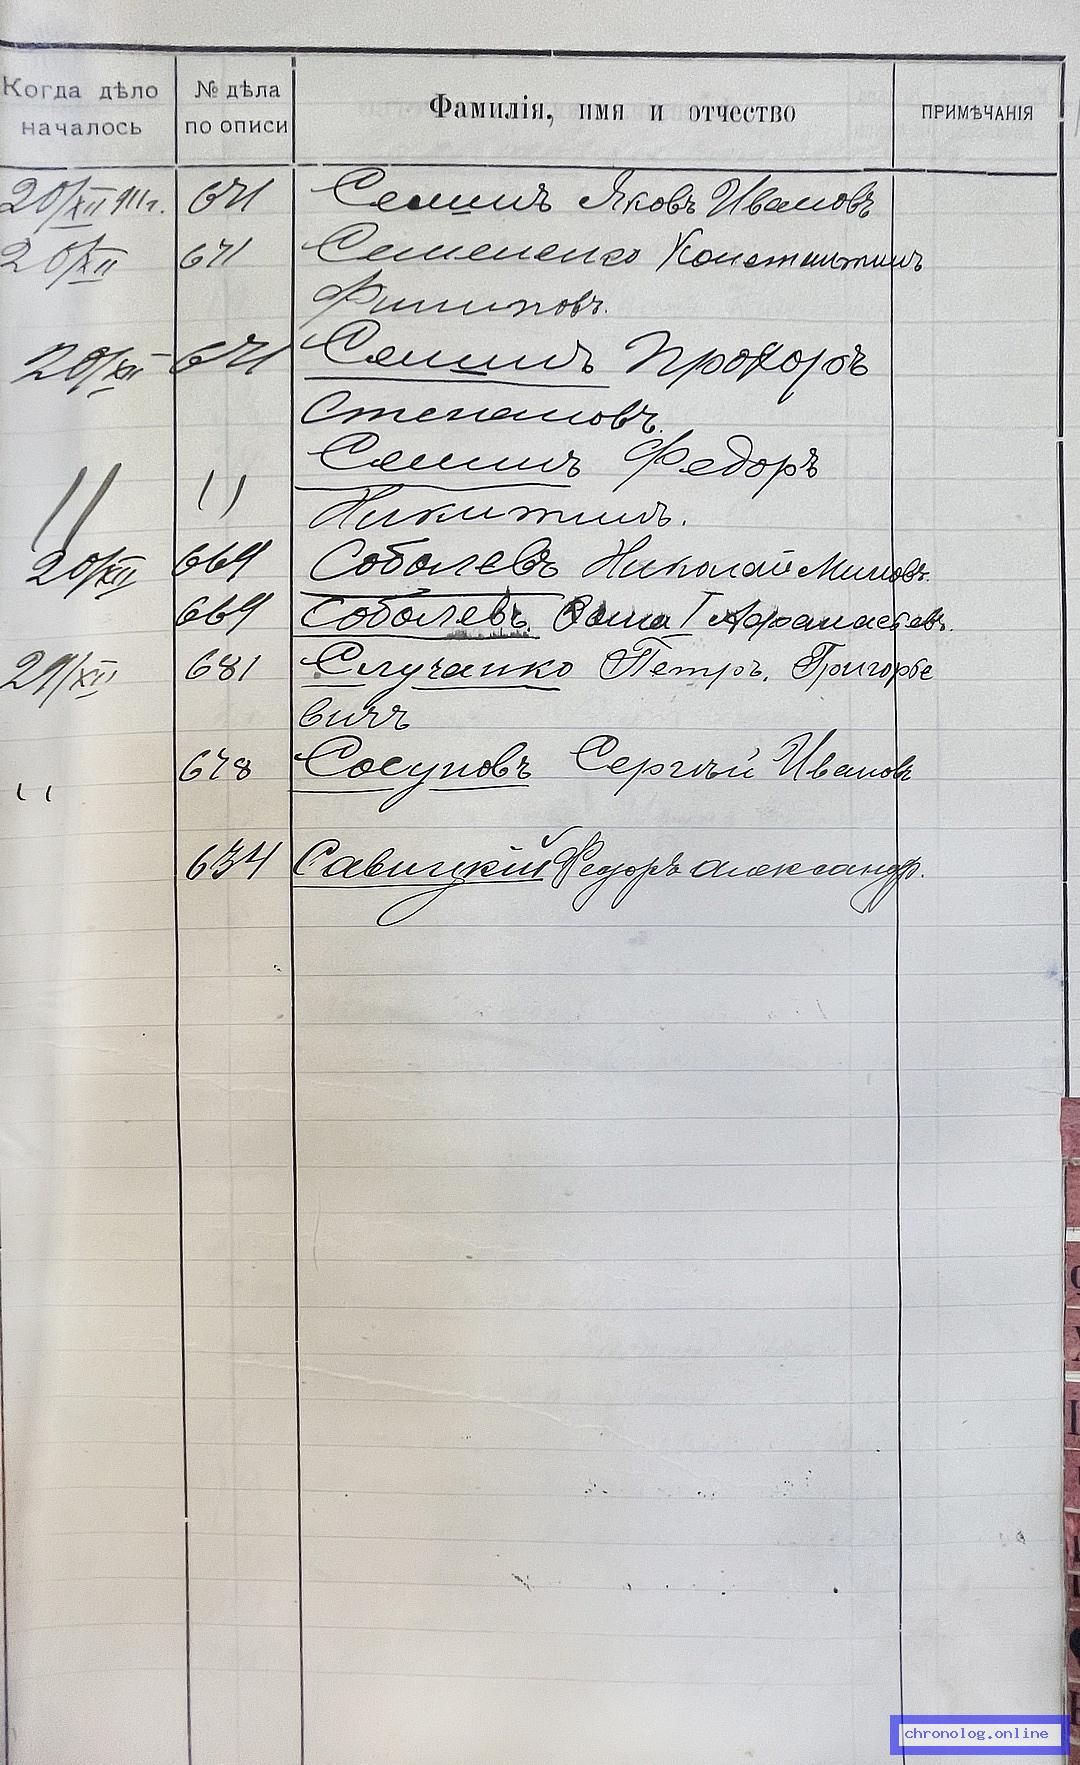 Когда дѣло началось № дѣла по описи Фамилія, имя и отчество ПРИМѢЧАНІЯ
20/XII 911 г. 671 Семинъ Яковъ Ивановъ
20/XII 671 Семененко Константинъ
Филиповъ.
20/XII 671 Семинъ Прохоръ
Степановъ.
Семинъ Федоръ
" " Никитинъ.
20/XII 669 Соболевъ Николай
669 Соболевъ I Афанасьевъ.
21/XII 681 Случанко Петръ. Григорье
вичъ
" 678 Сосуновъ Сергѣй Ивановъ
634 Савицкій Федоръ Александр.
chronolog.online